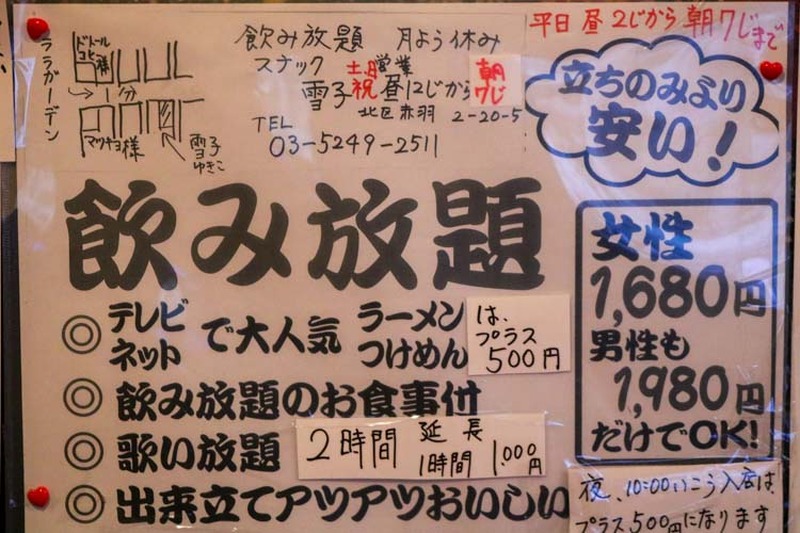 平日 昼2じから 朝7じまで
飲み放題 月よう休み
スナック 土日祝 営業
雪子 昼12じから 朝7じ
北区赤羽 2-20-5
TEL
03-5249-2511
ララガーデン
ドトール
コヒ様
1分
マツキヨ様
雪子
ゆきこ
立ちのみより
安い!
飲み放題
女性
1,680円
男性も
1,980円
だけでOK!
◎ テレビ ネット で大人気 ラーメン つけめん は、プラス500円
◎ 飲み放題のお食事付
◎ 歌い放題 2時間 延長 1時間 1,000円
◎ 出来立てアツアツおいしい
夜、10:00いこう入店は、
プラス500円になります